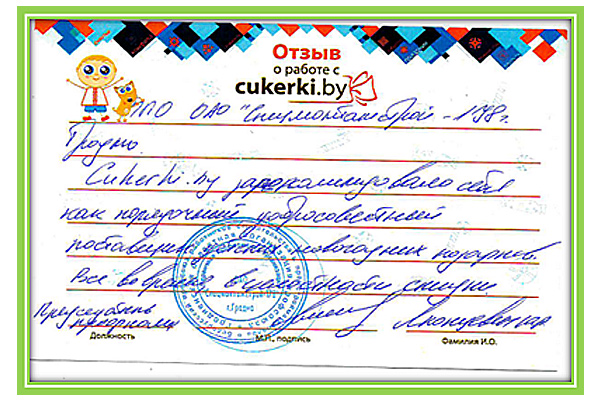 Отзыв
о работе с
cukerki.by
ППО ОАО "Спецмонтажстрой - 178 г.
Гродно.
Cukerki.by зарекомендовало себя
как порядочный, добросовестный
поставщик новогодних подарков.
Все во время, в целостности
Председатель
профкома
Должность
М.П., подпись
Фамилия И.О.
г.Гродно